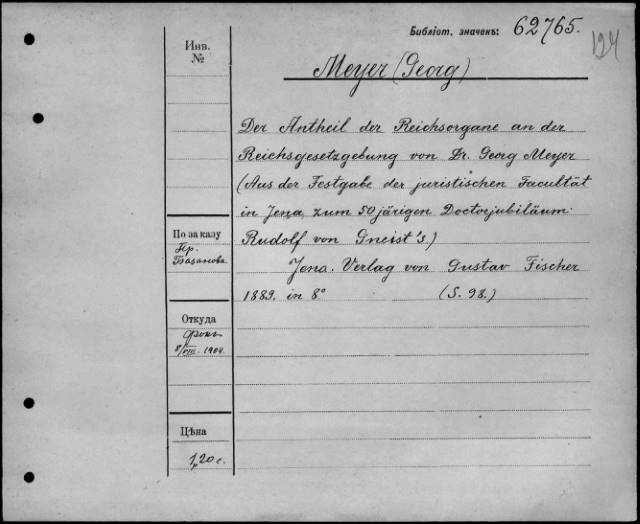 Библіот. значекъ: 62765.
124
Инв.
№
Meyer (Georg)
Der Antheil der Reichsorgane an der
Reichsgesetzgebung von Dr. Georg Meyer
(Aus der Festgabe der juristischen Facultät
in Jena zum 50 järigen Doctorjubiläum
Rudolf von Gneist's.)
Jena. Verlag von Gustav Fischer
1889. in 8° (S. 98.)
По заказу
Пр.
Базанова
Откуда
Фокъ
8/VII. 1904.
Цѣна
1,20 с.